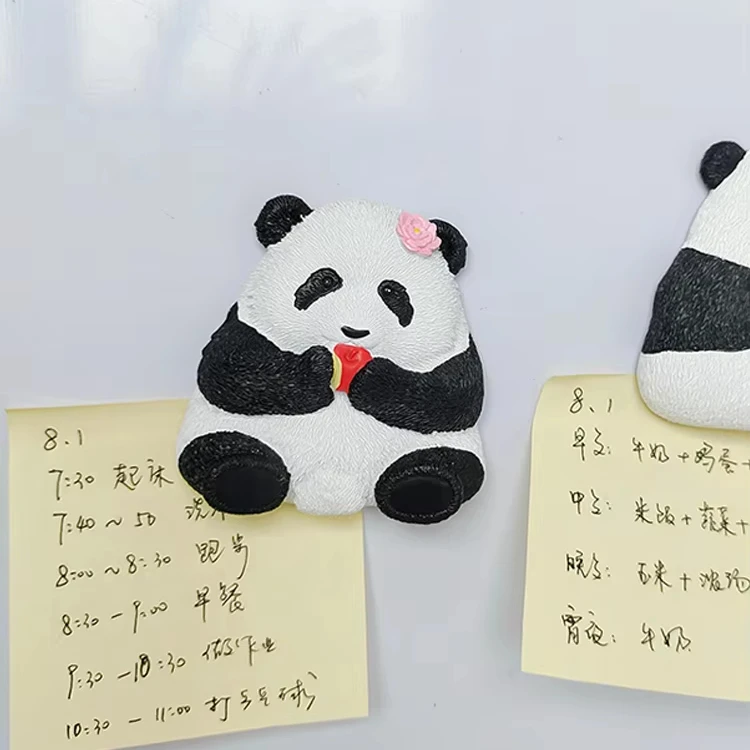 8.1
7:30 起床
7:40 ~ 50 洗
8:00 ~ 8:30 跑步
8:30 - 9:00 早餐
9:30 - 10:30 做作业
10:30 - 11:00 打乒乓球
8.1
早文: 牛奶 + 鸡蛋 +
中文: 米饭 + 蔬菜 +
晚文: 玉米 +
宵夜: 牛奶